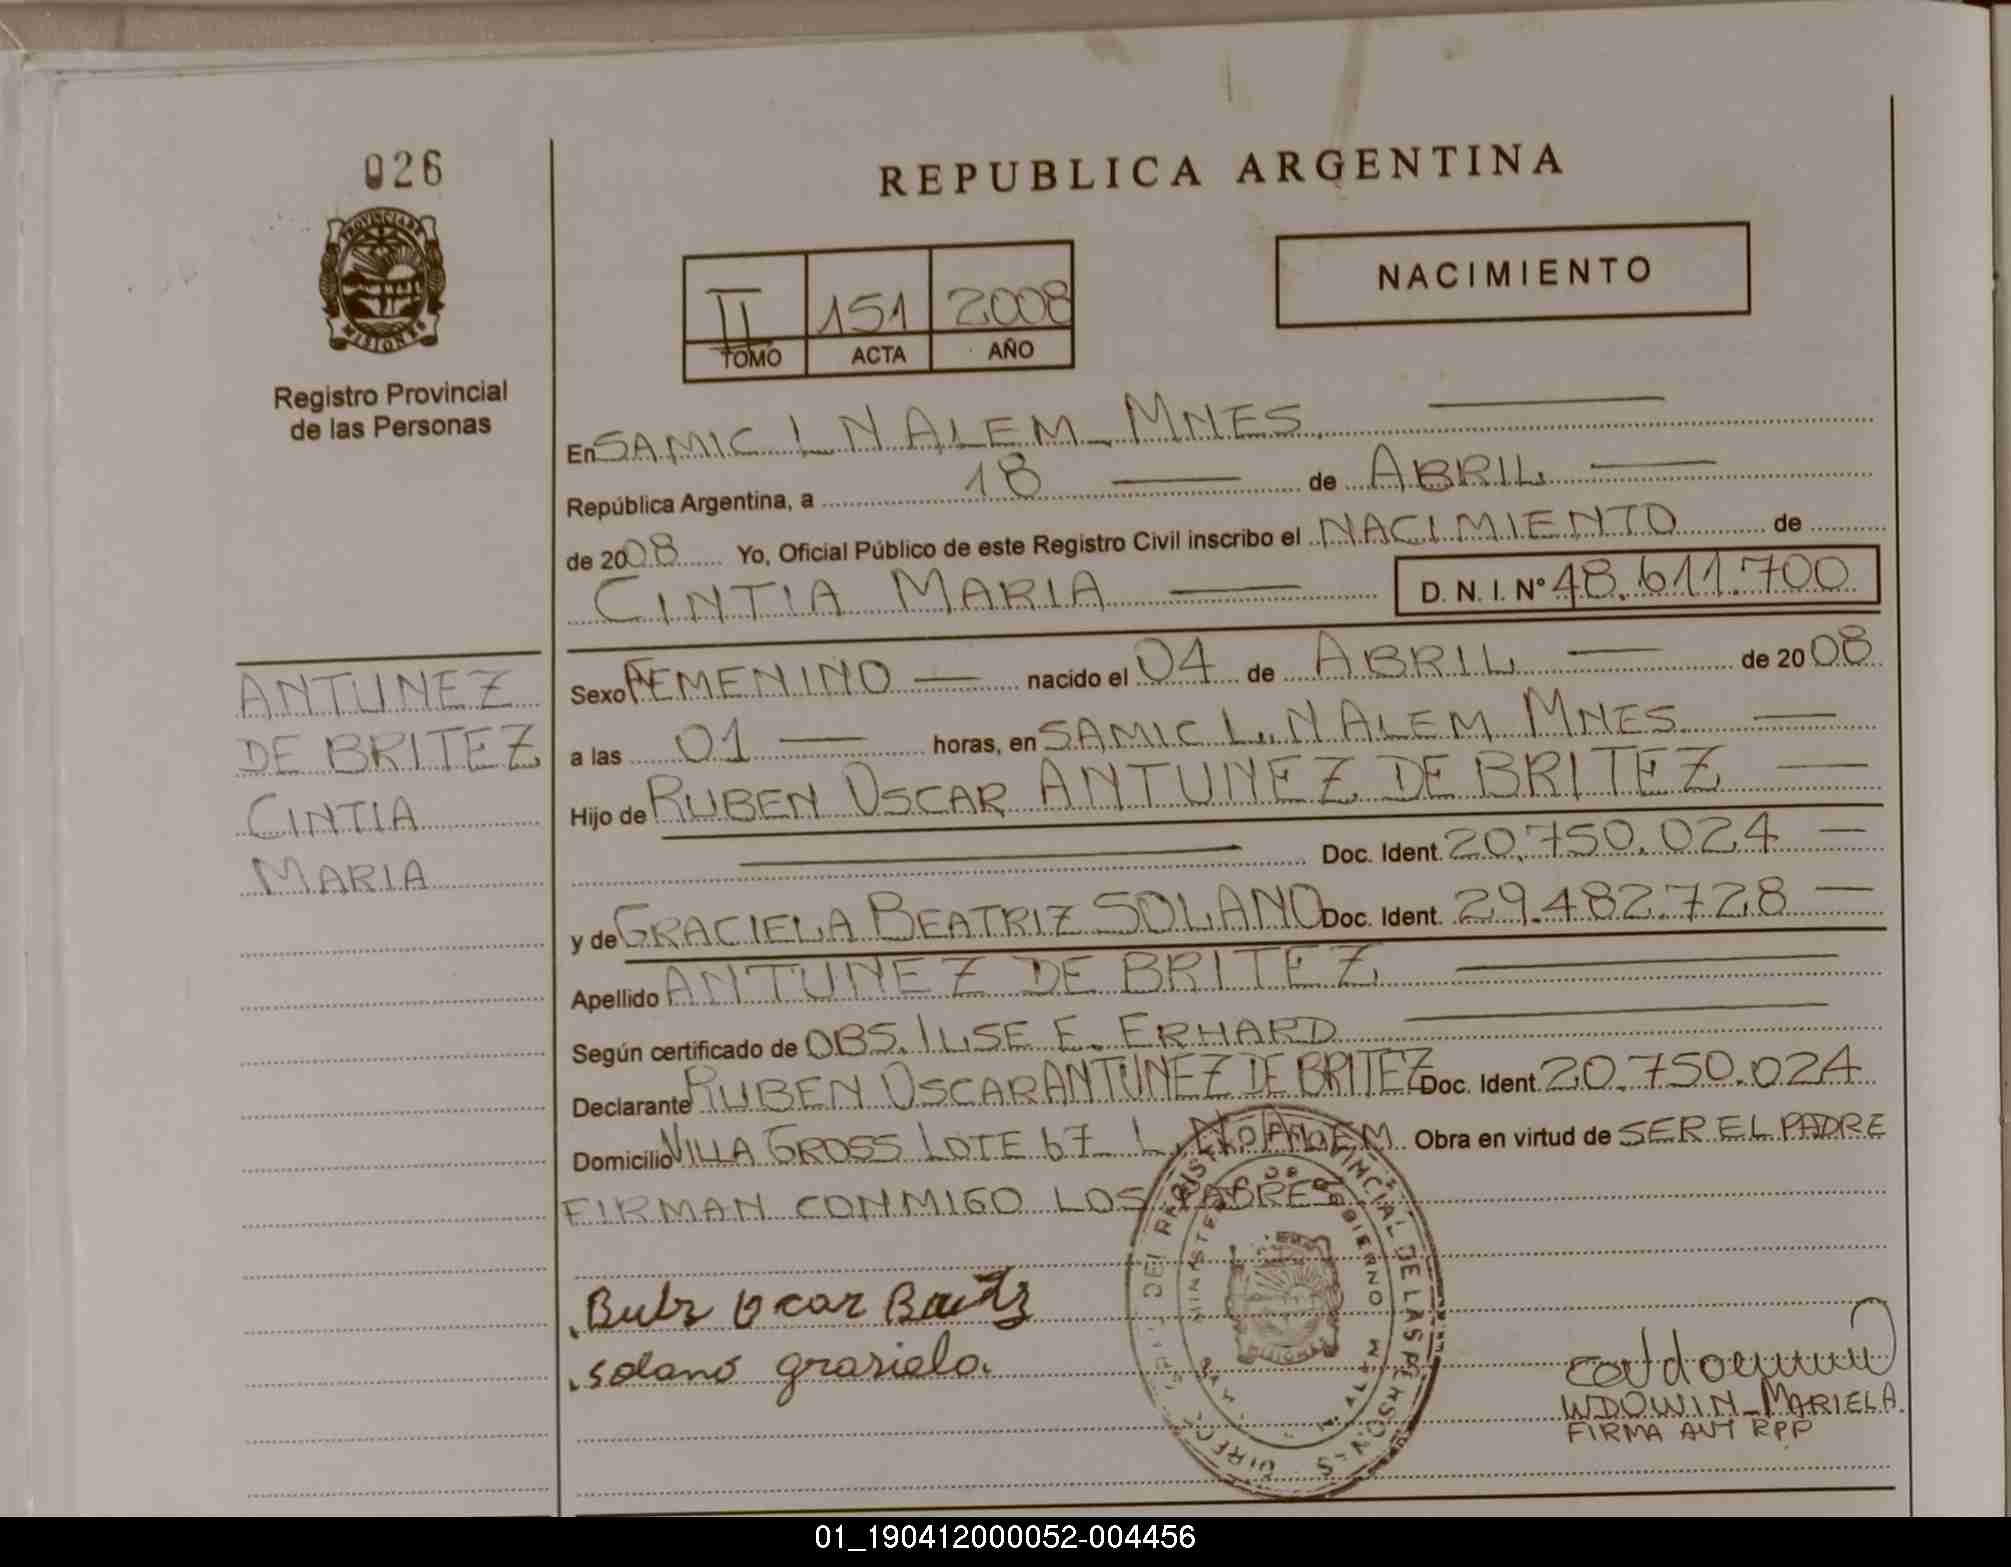 026
PROVINCIA DE
MISIONES
Registro Provincial
de las Personas
ANTUNEZ
DE BRITEZ
CINTIA
MARIA
REPUBLICA ARGENTINA
II 151 2008
TOMO ACTA AÑO
NACIMIENTO
En SAMIC L N ALEM MNES
República Argentina, a 18 de ABRIL
de 2008 Yo, Oficial Público de este Registro Civil inscribo el NACIMIENTO de
CINTIA MARIA D. N. I. Nº 48.611.700
Sexo FEMENINO nacido el 04 de ABRIL de 2008
a las 01 horas, en SAMIC L. N ALEM MNES
Hijo de RUBEN OSCAR ANTUNEZ DE BRITEZ
Doc. Ident. 20.750.024
y de GRACIELA BEATRIZ SOLANO Doc. Ident. 29.482.728
Apellido ANTUNEZ DE BRITEZ
Según certificado de OBS. ILSE E. ERHARD
Declarante RUBEN OSCAR ANTUNEZ DE BRITEZ Doc. Ident. 20.750.024
Domicilio VILLA GROSS LOTE 67 L. N. ALEM Obra en virtud de SER EL PADRE
FIRMAN CONMIGO LOS PADRES
solano grasiela.
WDOWIN MARIELA
FIRMA AUT RPP
01_190412000052-004456